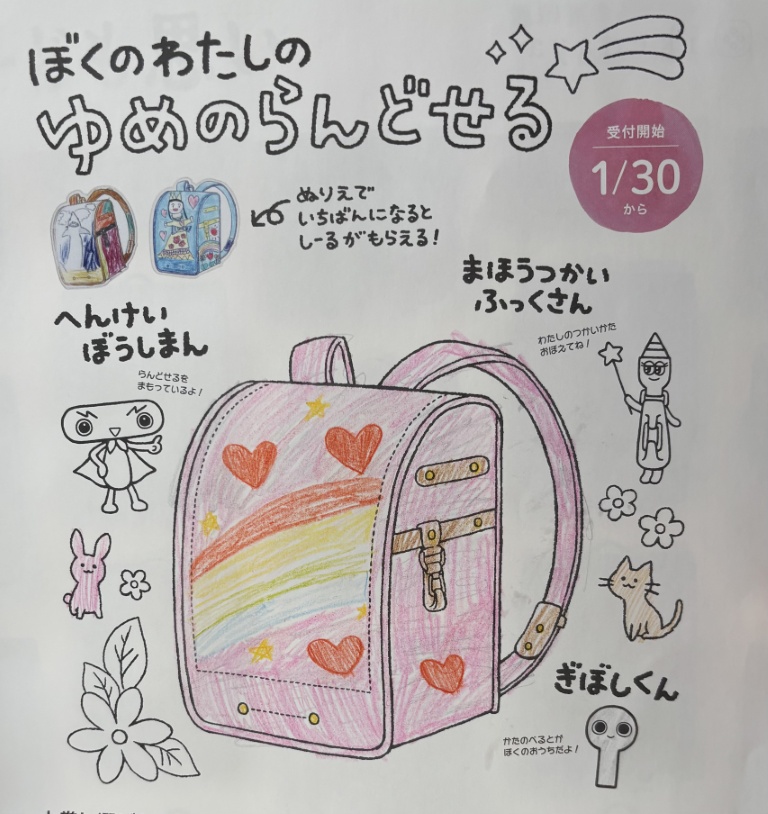 ぼくのわたしの
ゆめのらんどせる
受付開始
1/30
から
ぬりえで
いちばんになると
しーるがもらえる!
まほうつかい
ふっくさん
わたしのつかいかた
おぼえてね!
へんけい
ぼうしまん
らんどせるを
まもっているよ!
ぎぼしくん
かたのべるとが
ぼくのおうちだよ!